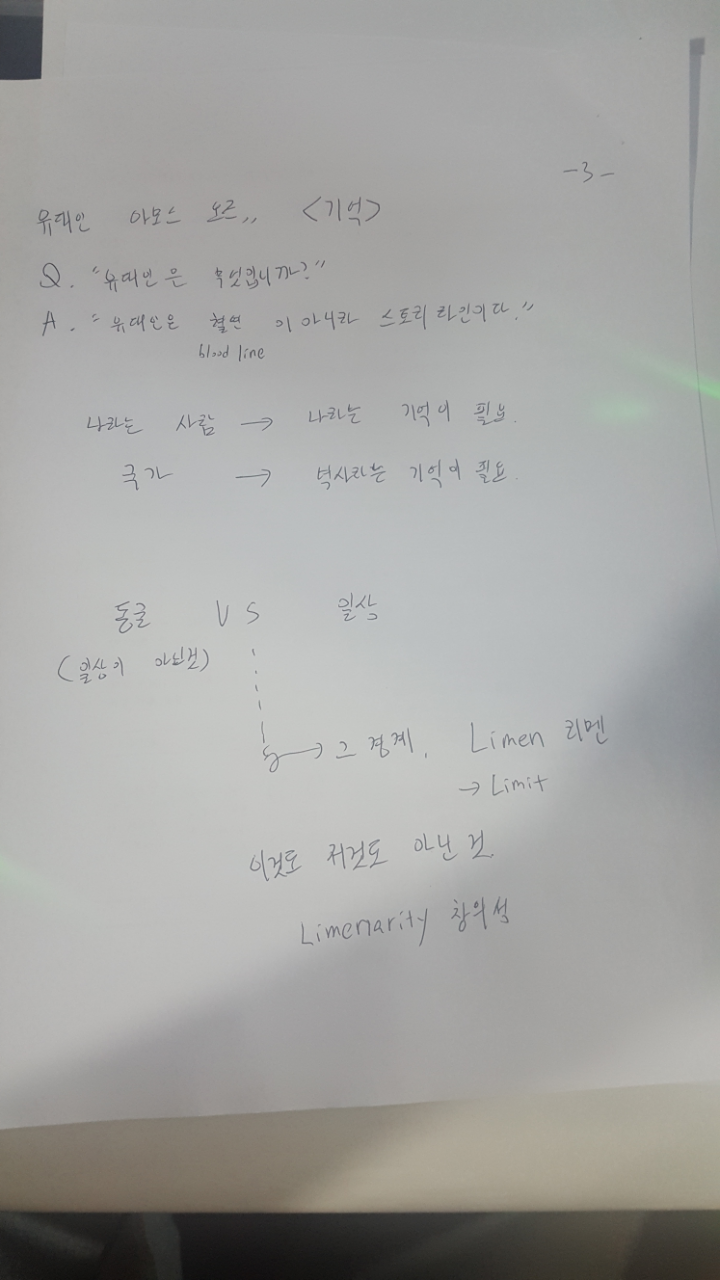 -3-
유대인 아모스 오즈,, <기억>
Q. "유대인은 무엇입니까?"
A. "유대인은 혈연 이 아니라 스토리 라인이다."
blood line
나라는 사람 → 나라는 기억이 필요.
국가 → 역사라는 기억이 필요.
동굴 VS 일상
(일상이 아닌것)
→ 그 경계, Limen 리멘
→ Limit
이것도 저것도 아닌 것.
Limenarity 창의성